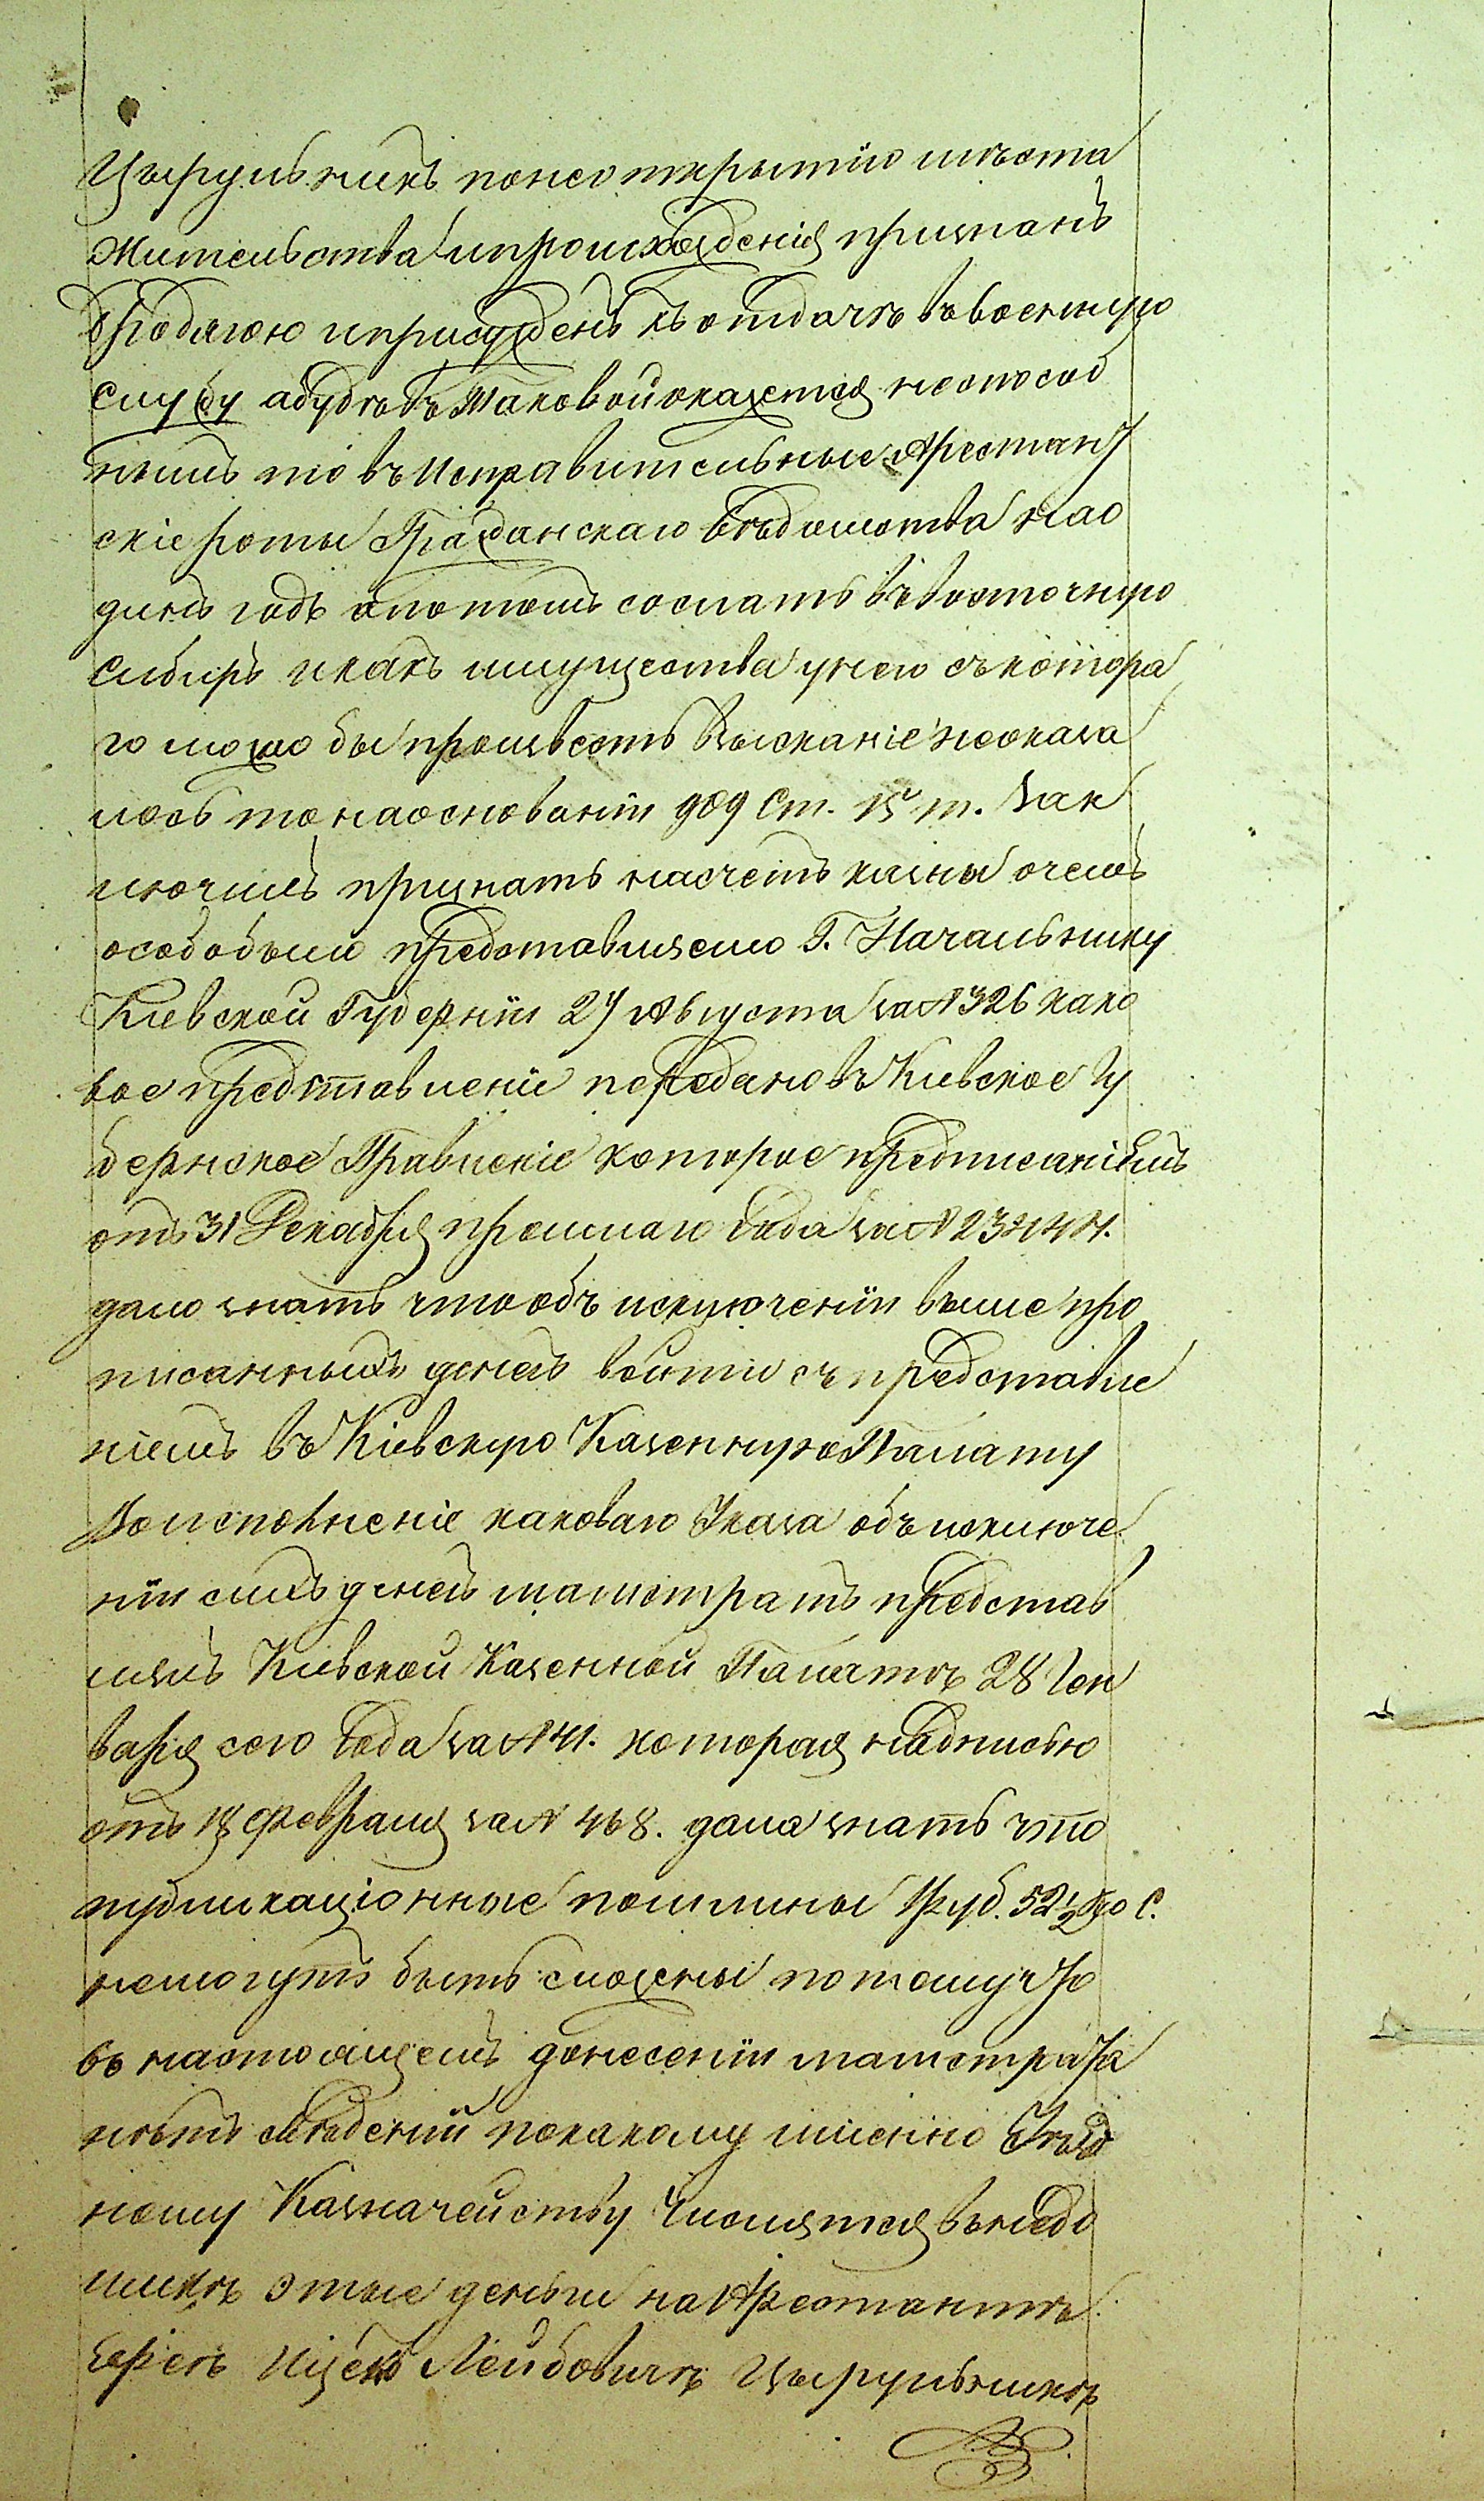 Цырульникъ понеоткрытію мѣста
жительства и происхожденія признанъ
бродягою и присужденъ къ отдачѣ въ военную
службу абудѣ въ таковой окажется неспособ
нымъ то въ исправительные Арестант
скіе роты Гражданскаго Вѣдомства нао
динъ годъ апотомъ сослать въ восточную
Сибирь икакъ имущества унего скотора
го можно бы произвесть взысканіе неоказа
лось то наоснованіи 909 ст. 15 т. Зак
лючилъ признать насчетъ казны очемъ
особо было представляемо Г. Начальнику
Кіевской Губерніи 27 Августа за № 326 како
вое представленіе передано въ Кіевское Гу
бернское Правленіе которое предписаніемъ
отъ 31 Декабря прошлаго Года за № 23444.
дало знать что объ исключеніи выше про
писанныхъ денегъ войти съ представле
ніемъ въ Кіевскую Казенную Палату
Воисполненіе каковаго Указа объ исключе
ніи сихъ денегъ магистратъ представ
лялъ Кіевской Казенной Палатѣ 28 Ген
варя сего Года за № 41. которая надписью
отъ 18 Февраля за № 468. дала знать что
публикаціонные пошлины 1 руб. 52 1/2 ко с.
немогутъ быть сложены потому что
въ настоящемъ донесеніи магистрата
нѣтъ свѣдений покакому имянно Уѣзд
ному Казначейству числятся въ недо
имкѣ этые деньги на Арестантѣ
Ицекѣ Лейбовичѣ Цырульникѣ